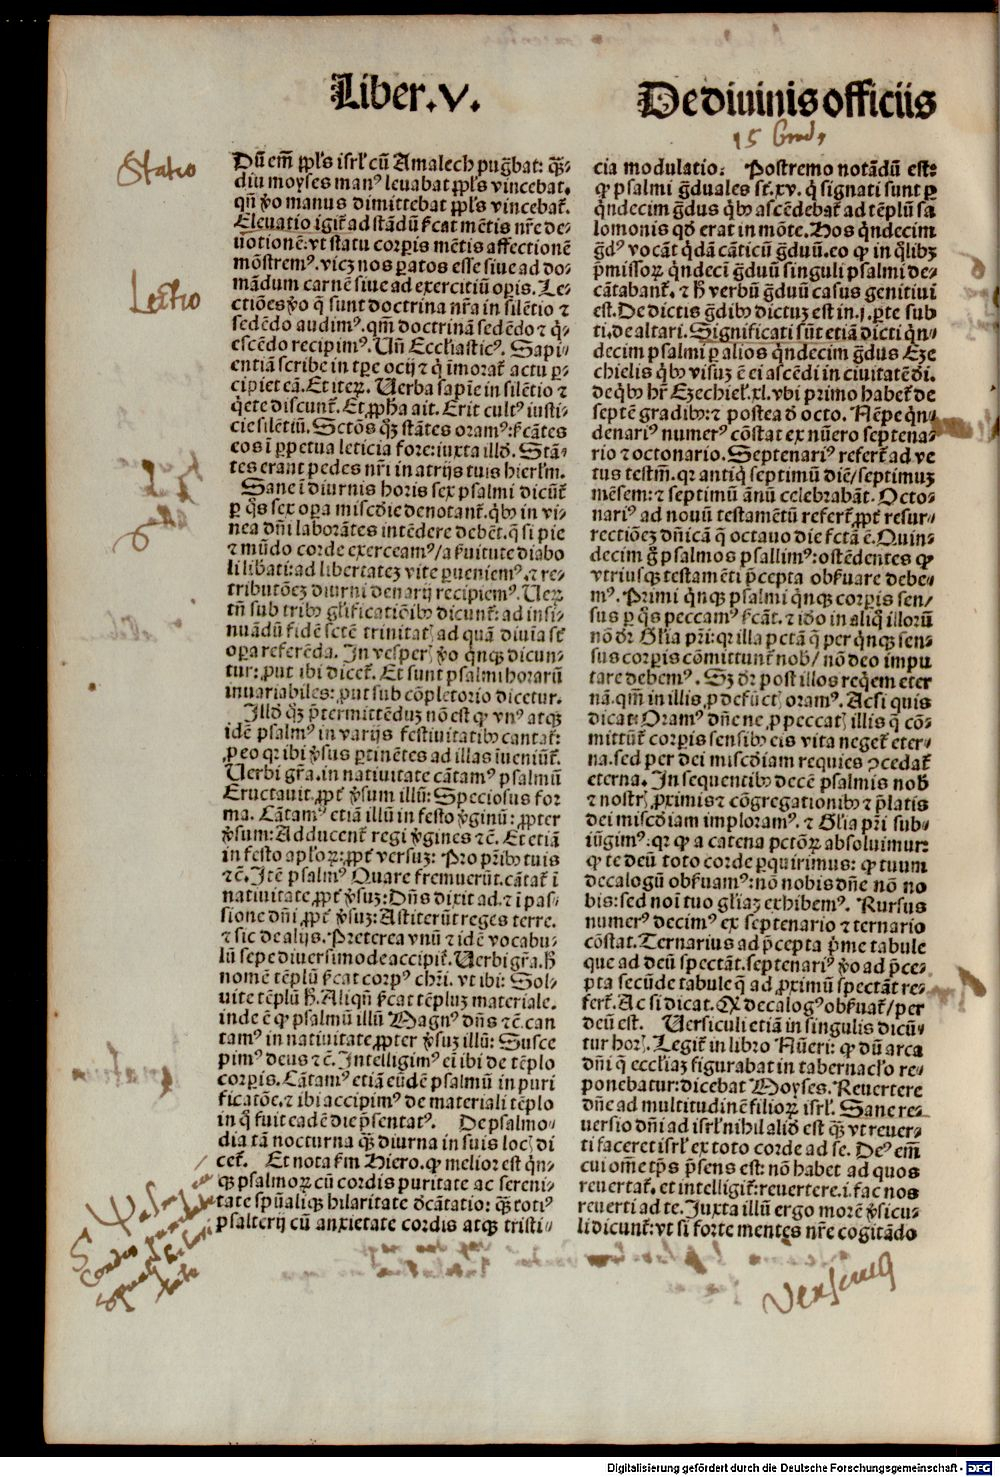 Liber.V.
De diuinis officiis
15 Grad9
Statio
Lectio
Dū em̄ ppl's isrl' cū Amalech puḡbat: q̄3-
diu moyses man9 leuabat ppl's vincebat.
qn̄ v̊o manus dimittebat ppl's vincebat̄.
Eleuatio igit̄ ad stādū ẜcat mētis nr̄e de-
uotionē: vt statu corpis mētis affectionē
mōstrem9. vicz nos patos esse siue ad do-
mādum carnē siue ad exercitiū opis. Le-
ctiōes v̊o q̄ sunt doctrina nr̄a in silētio ⁊
sedēdo audim9. qm̄ doctrinā sedēdo ⁊ q̇-
escēdo recipim9. Un̄ Ecclīastic9. Sapi-
entiā scribe in tp̄e ocij ⁊ q̇ īmorat̄ actu p-
cipiet eā. Et iteꝝ. Uerba sapīe in silētio ⁊
q̇ete discunt̄. Et ꝓph̄a ait. Erit cult9 iusti-
cie silētiū. Sctōs q̄3 stātes oram9: ẜcātes
eos ī ppetua leticia fore: iuxta illd̄. Stā-
tes erant pedes nr̄i in atrijs tuis hierl'm.
Sane ī diurnis horis sex psalmi dicūt̄
p q̄s sex opa miscd̄ie denotant̄. q̇b9 in vi-
nea dn̄i laborātes intēdere debēt. q̄ si pie
⁊ mūdo corde exerceam9/a ẜuitute diabo
li libati: ad libertatez vite pueniem9. ⁊ re-
tributōez diurni denarij recipiem9. Ueꝝ
tn̄ sub trib9 gl'ificatiōib9 dicunt̄: ad insi-
nuādū fidē scte trinitatꝭ ad quā diuīa st̄
opa referēda. In vesperꝭ v̊o q̇nq3 dicun-
tur: put ibi dicet̄. Et sunt psalmi horarū
inuariabiles: put sub cōpletorio dicetur.
Illd̄ q̄3 p̄termittēduz nō est ꝙ vn9 atq3
idē psalm9 in varijs festiuitatib9 cantat̄:
p eo qr ibi v̊sus ptinētes ad illas īueniūt̄.
Uerbi gr̄a. in natiuitate cātam9 psalmū
Eructauit. ppt̄ v̊sum illū: Speciosus for
ma. Cātam9 etiā illū in festo v̊ginū: ppter
v̊sum: Adducent̄ regi v̊gines ⁊c̄. Et etiā
in festo apl'oꝝ: ppt̄ versuz: Pro pr̄ib9 tuis
⁊c̄. Itē psalm9 Quare fremuerūt. cātat̄ ī
natiuitate ppt̄ v̊suz: Dn̄s dixit ad. ⁊ ī pas-
sione dn̄i ppt̄ v̊suz: Astiterūt reges terre.
⁊ sic de alijs. Preterea vnū ⁊ idē vocabu-
lū sepe diuersimode accipit̄. Uerbi gr̄a. h̄
nomē tēplū ẜcat corp9 chr̄i. vt ibi: Sol-
uite tēplū h̄. Aliqn̄ ẜcat tēpluz materiale.
inde ē ꝙ psalmū illū Magn9 dn̄s ⁊c̄. can
tam9 in natiuitate ppter v̊suz illū: Susce
pim9 deus ⁊c̄. Intelligim9 ei ibi de tēplo
corpis. Cātam9 etiā eūdē psalmū in puri
ficatōe. ⁊ ibi accipim9 de materiali tēplo
in q̊ fuit eadē die p̄sentat9. De psalmo-
dia tā nocturna q̄3 diurna in suis locꝭ di
cet̄. Et nota ẜm Hiero. ꝙ melior est q̇n-
q3 psalmoꝝ cū cordis puritate ac sereni-
tate spūaliq3 hilaritate dcātatio: q̄3 toti9
psalterij cū anxietate cordis atq3 tristi-
cia modulatio. Postremo notādū est:
ꝙ psalmi g̊duales st̄. xv. q̇ signati sunt p
q̇ndecim g̊dus q̇b9 ascēdebat̄ ad tēplū sa
lomonis qd̄ erat in mōte. Hos q̇ndecim
g̊d9 vocāt q̇dā cāticū g̊duū. eo ꝙ in q̇lib3
p̄missoꝝ q̇ndecī g̊duū singuli psalmi de-
cātabant̄. ⁊ h̄ verbū g̊duū casus genitiui
est. De dictis g̊dib9 dictuz est in. j. pte sub
ti. de altari. Significati sūt etiā dicti q̇n-
decim psalmi p alios q̇ndecim g̊dus Eze
chielis q̇b9 visuz ē ei ascēdi in ciuitatē dī.
de q̇b9 hr̄ Ezechiel'. xl. vbi primo habet̄ de
septē gradib9: ⁊ postea d̄ octo. Nēpe q̇n-
denari9 numer9 cōstat ex nūero septena-
rio ⁊ octonario. Septenari9 refert̄ ad ve
tus testm̄. qr antiq̇ septimū diē/septimuz
mēsem: ⁊ septimū ānū celebrabāt. Octo-
nari9 ad nouū testamētū refert̄ ppt̄ resur-
rectiōez dn̄icā q̄ octauo die fcta ē. Quin-
decim g̊ psalmos psallim9: ostēdentes ꝙ
vtriusq3 testamēti p̄cepta obẜuare debe-
m9. Primi q̇nq3 psalmi q̇nq3 corpis sen/
sus p q̄s peccam9 ẜcāt. ⁊ id̄o in aliq̊ illorū
nō dr̄ Gl'ia pr̄i: qr illa pctā q̄ per q̇nq3 sen-
sus corpis cōmittunt̄ nob/ nō deo impu
tare debem9. S3 dr̄ post illos req̇em eter
nā. qm̄ in illis p defūctꝭ oram9. Acsi quis
dicat: Oram9 dn̄e ne p peccatꝭ illis q̄ cō-
mittūt̄ corpis sensib9 eis vita neget̄ eter-
na. sed per dei miscd̄iam requies ↄcedat̄
eterna. In sequentib9 decē psalmis nob
⁊ nostrꝭ pximis ⁊ cōgregationib9 ⁊ p̄latis
dei miscd̄iam imploram9. ⁊ Gl'ia pr̄i sub-
iūgim9: qr ꝙ a catena pctōꝝ absoluimur:
ꝙ te deū toto corde pquirimus: ꝙ tuum
decalogū obẜuam9: nō nobis dn̄e nō no
bis: sed noī tuo gl'iaz exhibem9. Rursus
numer9 decim9 ex septenario ⁊ ternario
cōstat. Ternarius ad p̄cepta p̄me tabule
que ad deū spectāt. septenari9 v̊o ad p̄ce-
pta secūde tabule q̄ ad pximū spectāt re-
fert̄. Ac si dicat. Q̇ decalog9 obẜuat̄/per
deū est. Uersiculi etiā in singulis dicū-
tur horꝭ. Legit̄ in libro Nūeri: ꝙ dū arca
dn̄i q̄ eccl'iaz figurabat in tabernacl'o re-
ponebatur: dicebat Moyses. Reuertere
dn̄e ad multitudinē filioꝝ isrl'. Sane re-
uersio dn̄i ad isrl' nihil aliō est q̄3 vt reuer-
ti faceret isrl' ex toto corde ad se. De9 em̄
cui om̄e tp̄s p̄sens est: nō habet ad quos
reuertat̄. et intelligit̄: reuertere. i. fac nos
reuerti ad te. Juxta illū ergo morē v̊sicu-
li dicunt̄: vt si forte mentes nr̄e cogitādo
5 Psalmj cū
cordis puritate
spūali hilari
tate
versiculi
Digitalisierung gefördert durch die Deutsche Forschungsgemeinschaft - DFG